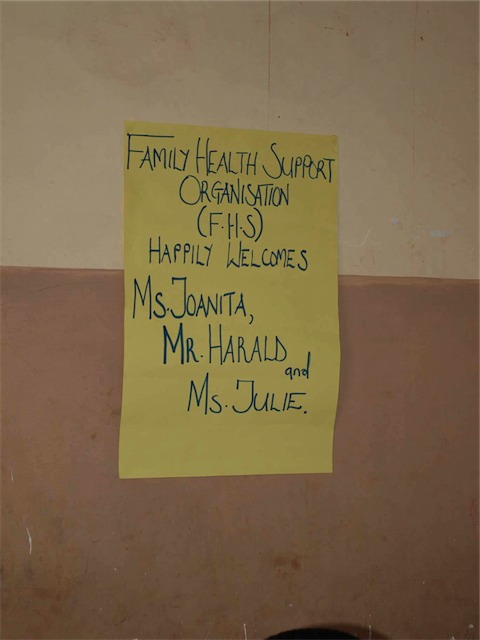 FAMILY HEALTH SUPPORT
ORGANISATION
(F.H.S)
HAPPILY WELCOMES
MS. JOANITA,
MR. HARALD
and
MS. JULIE.